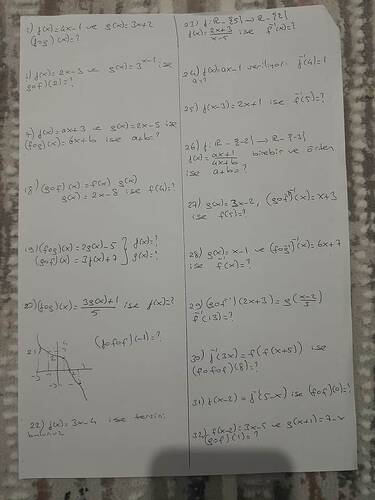 f(x)=4x-1 ve g(x)=3x+2
(fog)(x)=?
f(x)=2x-3 ve g(x)=3^(x-1) ise
(gof)(2)=?
f(x)=ax+3 ve g(x)=2x-5 ise
(fog)(x)=6x+b ise a+b=?
18) (gof)(x)=f(x) g(x)
g(x)=2x-8 ise f(4)=?
19) (fog)(x)=2g(x)-5 } f(x)=?
(gof)(x)=3f(x)+7 } g(x)=?
20) (fog)(x)=(3g(x)+1)/5 ise f(x)=?
21)
(fofof)(-1)=?
22) f(x)=3x-4 ise tersini
bulunuz
23) f: R-{5}→R-{2}
f(x)=(2x+3)/(x-5) ise f⁻¹(x)=?
24) f(x)=ax-1 veriliyor. f⁻¹(4)=1
a=?
25) f(x-3)=2x+1 ise f⁻¹(5)=?
26) f: R-{-2}→R-{-3}
f(x)=(ax+1)/(4x+b) birebir ve örten
ise a+b=?
27) g(x)=3x-2, (gof)⁻¹(x)=x+3
ise f(5)=?
28) g(x)=x-1 ve (fog)⁻¹(x)=6x+7
ise f⁻¹(x)=?
29) (gof⁻¹)(2x+3)=g((x-2)/3)
f⁻¹(13)=?
30) f⁻¹(3x)=f(f(x+5)) ise
(fofof)(8)=?
31) f(x-2)=f⁻¹(5-x) ise (fof)(0)=?
32) f(x-2)=3x-5 ve g(x+1)=7-x
(gof)(1)=?